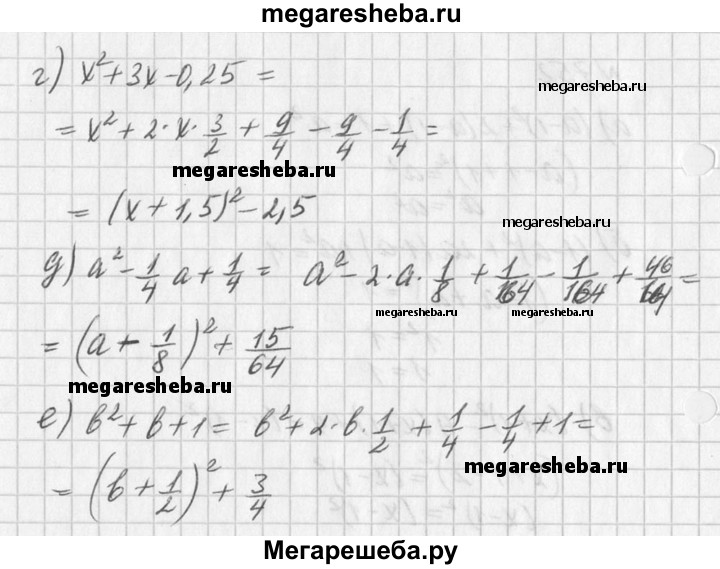 megaresheba.ru
г) x² + 3x - 0,25 =
megaresheba.ru
= x² + 2·x·3/2 + 9/4 - 9/4 - 1/4 =
megaresheba.ru
= (x + 1,5)² - 2,5
megaresheba.ru
д) a² - 1/4 a + 1/4 = a² - 2·a·1/8 + 1/64 - 1/64 + 16/64 =
megaresheba.ru megaresheba.ru
= (a - 1/8)² + 15/64
megaresheba.ru
е) b² + b + 1 = b² + 2·b·1/2 + 1/4 - 1/4 + 1 =
megaresheba.ru
= (b + 1/2)² + 3/4
Мегарешеба.ру